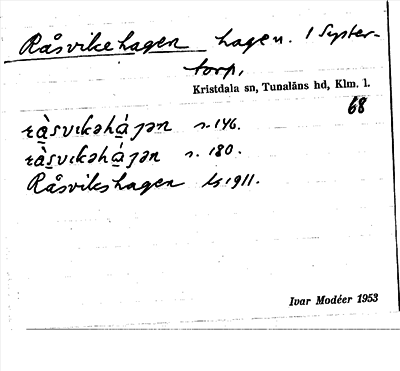 Råsvikehagen hagen. I Syster-
torp,
Kristdala sn, Tunaläns hd, Klm. l.
68
rà̱svıkəhá̱gən s. 146.
rà̱svıkəhá̱gən s. 180.
Råsvikshagen 1911.
Ivar Modéer 1953